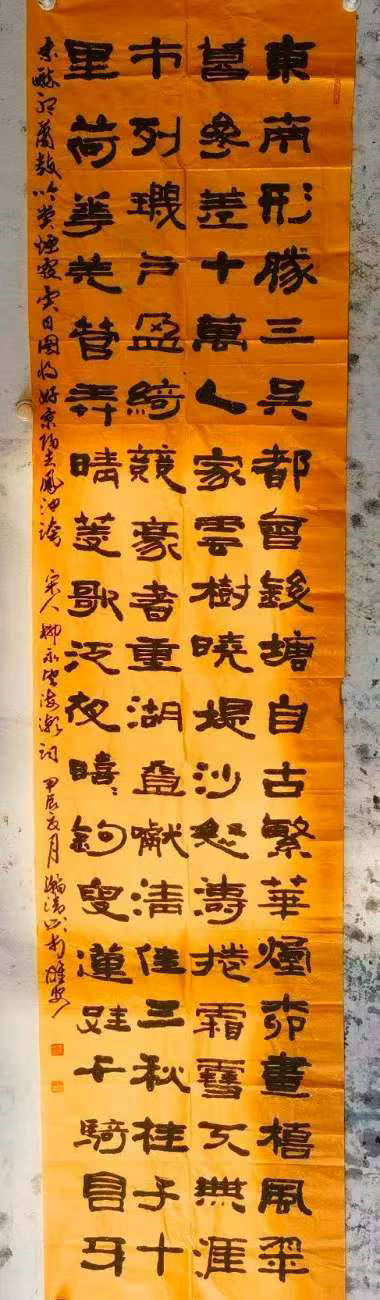 東南形勝三吳都會錢塘自古繁華煙柳畫橋風翠
參差十萬人家雲樹曉堤沙怒濤捲霜雪天無涯
市列璣戶盈綺競豪者重湖疊巘清佳三秋桂子十
里荷華羌管弄晴菱歌泛夜嘻〻釣叟蓮娃千騎牙
乘醉聽簫鼓吟賞煙霞異日圖將好景歸去鳳池誇 宋人柳永望海潮詞 甲辰夏月